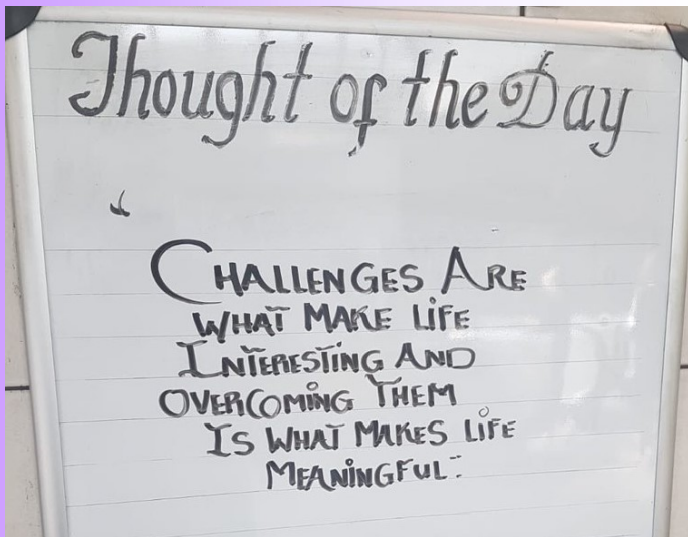 Thought of the Day
CHALLENGES ARE
WHAT MAKE LiFE
INTERESTiNG AND
OVERCOMiNG THEM
IS WHAT MAKES LiFE
MEANiNGFUL